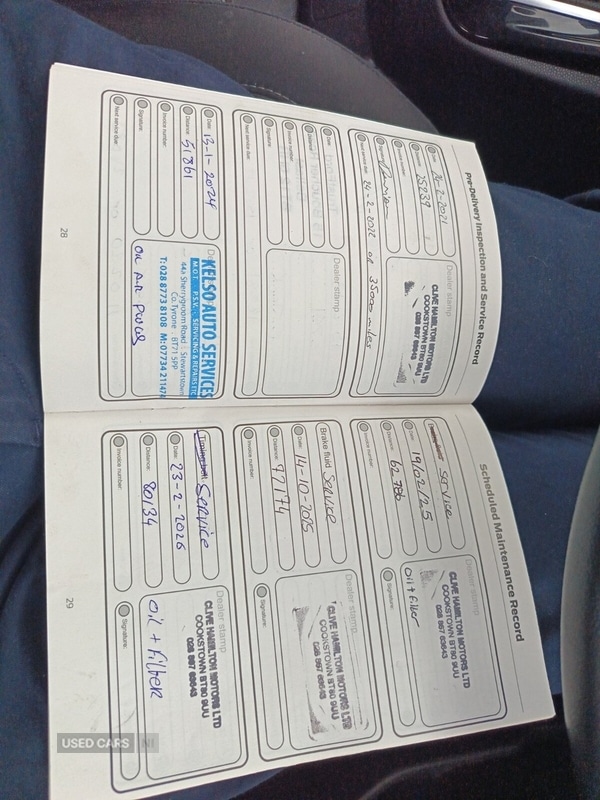 Pre-Delivery Inspection and Service Record
Date: 24-2-2021
Distance: 25239
Invoice number:
Signature:
Next service due: 24-2-2022 or 35000 miles
Dealer stamp
CLIVE HAMILTON MOTORS LTD
COOKSTOWN BT80 9UU
028 867 63643
Date:
Distance:
Invoice number:
Signature:
Next service due:
Dealer stamp
Date: 13-1-2024
Distance: 51861
Invoice number:
Signature:
Next service due:
KELSO AUTO SERVICES
M.O.T. P.S.V. SERVICING & REPAIRS ETC
44a Sherrygroom Road Stewartstown
Co. Tyrone BT71 5PP
T: 028 8773 8108 M: 07734 211472
OIL AIR PLUGS
28
Scheduled Maintenance Record
Service
Date: 19/02/25
Distance: 62786
Invoice number:
Dealer stamp
CLIVE HAMILTON MOTORS LTD
COOKSTOWN BT80 9UU
028 867 63643
Oil + filter
Brake fluid Service
Date: 14-10-2025
Distance: 77174
Invoice number:
Dealer stamp
CLIVE HAMILTON MOTORS LTD
COOKSTOWN BT80 9UU
028 867 63643
Signature:
Timing belt: Service
Date: 23-2-2026
Distance: 80134
Invoice number:
Dealer stamp
CLIVE HAMILTON MOTORS LTD
COOKSTOWN BT80 9UU
028 867 63643
Oil + Filter
Signature:
29
USED CARS NI